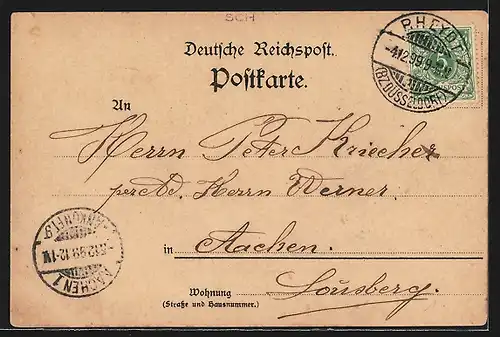 SCH
Deutsche Reichspost.
Postkarte.
RHEYDT
4.12.99.9
(BZ. DÜSSELDORF)
5
POST
An
Herrn Peter Kriecher
per Ad. Herrn Werner
in Aachen.
Lousberg.
Wohnung
(Straße und Hausnummer.)
5.12.99.12-1N.
AACHEN 1